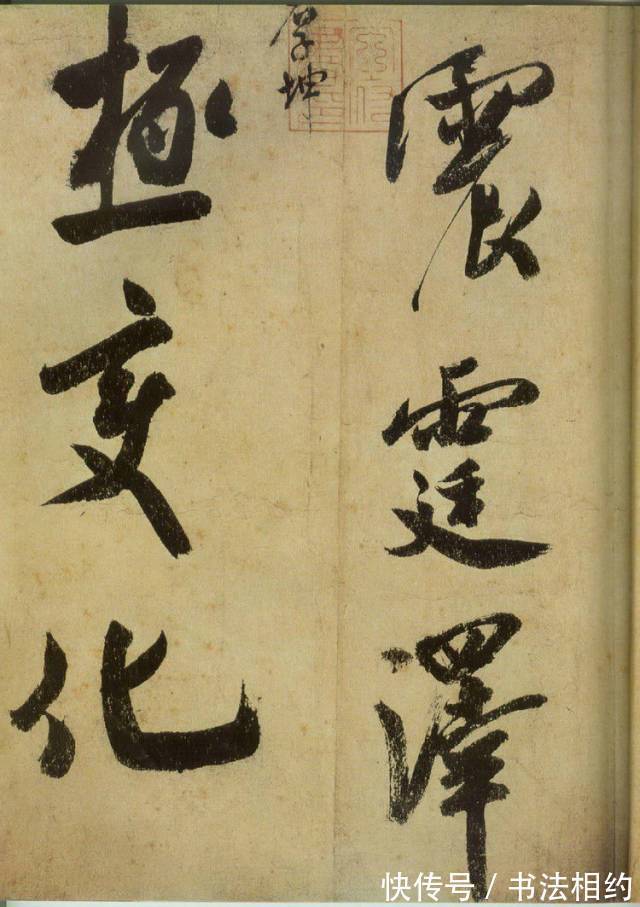 震霆澤
厚坤
極变化
快传号/书法相约